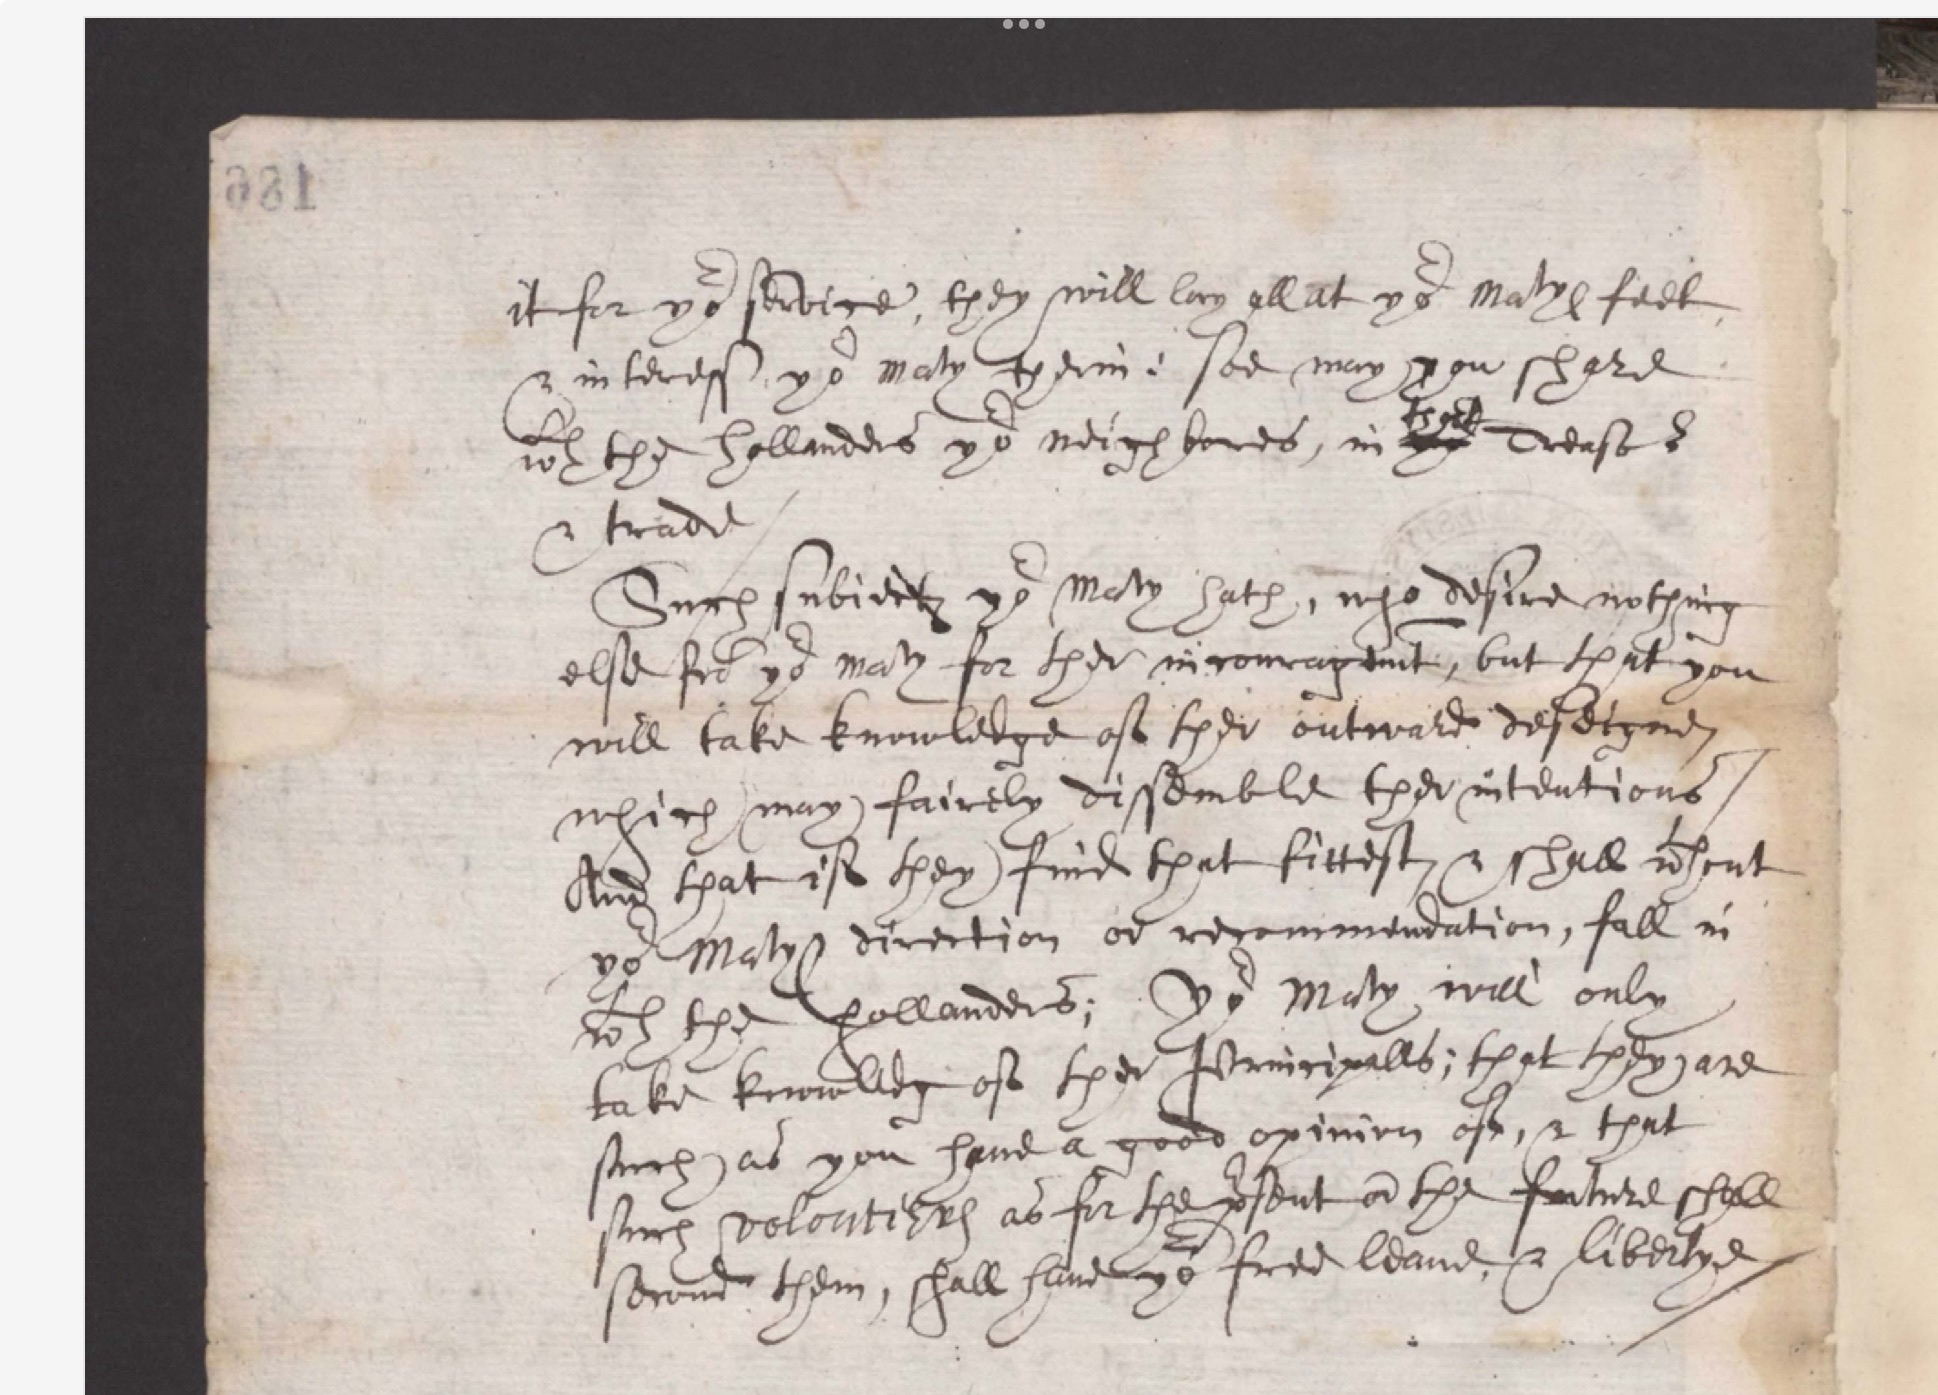 it for yor service, they will lay all at yor Matys feet,
& interess yor Maty therin: soe may you share
wth the Hollanders yor neighbores, in that Treasor
& trade /
Such subiects yor Maty hath, who desire nothing
else fro yor Maty for ther incouragemt, but that you
will take knowledge of ther outward desseignes
which may fairely dissemble ther intentions /
And that if they find that fittest, & shall wthout
yor Matys direction or recommendation, fall in
wth the Hollanders; Yor Maty will only
take knowledg of ther Principalls; that they are
such as you haue a good opinion of, & that
such volontiers as for the prsent or the future shall
second them, shall haue yor free leaue, & libertye /
186